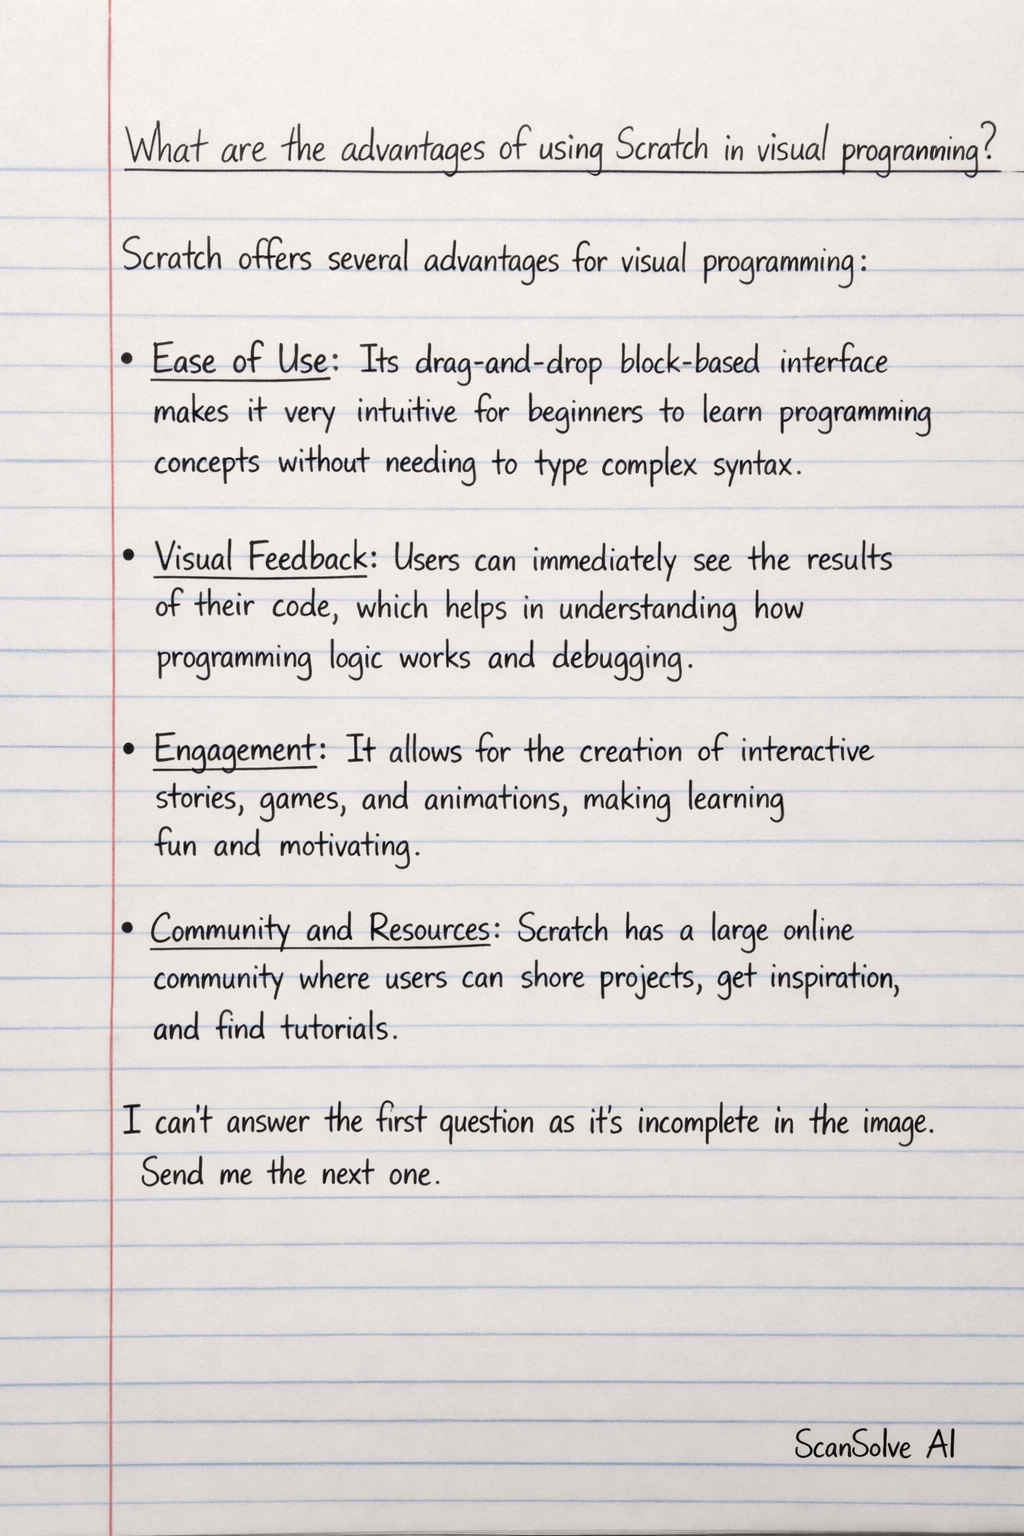 What are the advantages of using Scratch in visual programming?
Scratch offers several advantages for visual programming:
• Ease of Use: Its drag-and-drop block-based interface
makes it very intuitive for beginners to learn programming
concepts without needing to type complex syntax.
• Visual Feedback: Users can immediately see the results
of their code, which helps in understanding how
programming logic works and debugging.
• Engagement: It allows for the creation of interactive
stories, games, and animations, making learning
fun and motivating.
• Community and Resources: Scratch has a large online
community where users can shore projects, get inspiration,
and find tutorials.
I can't answer the first question as it's incomplete in the image.
Send me the next one.
ScanSolve AI